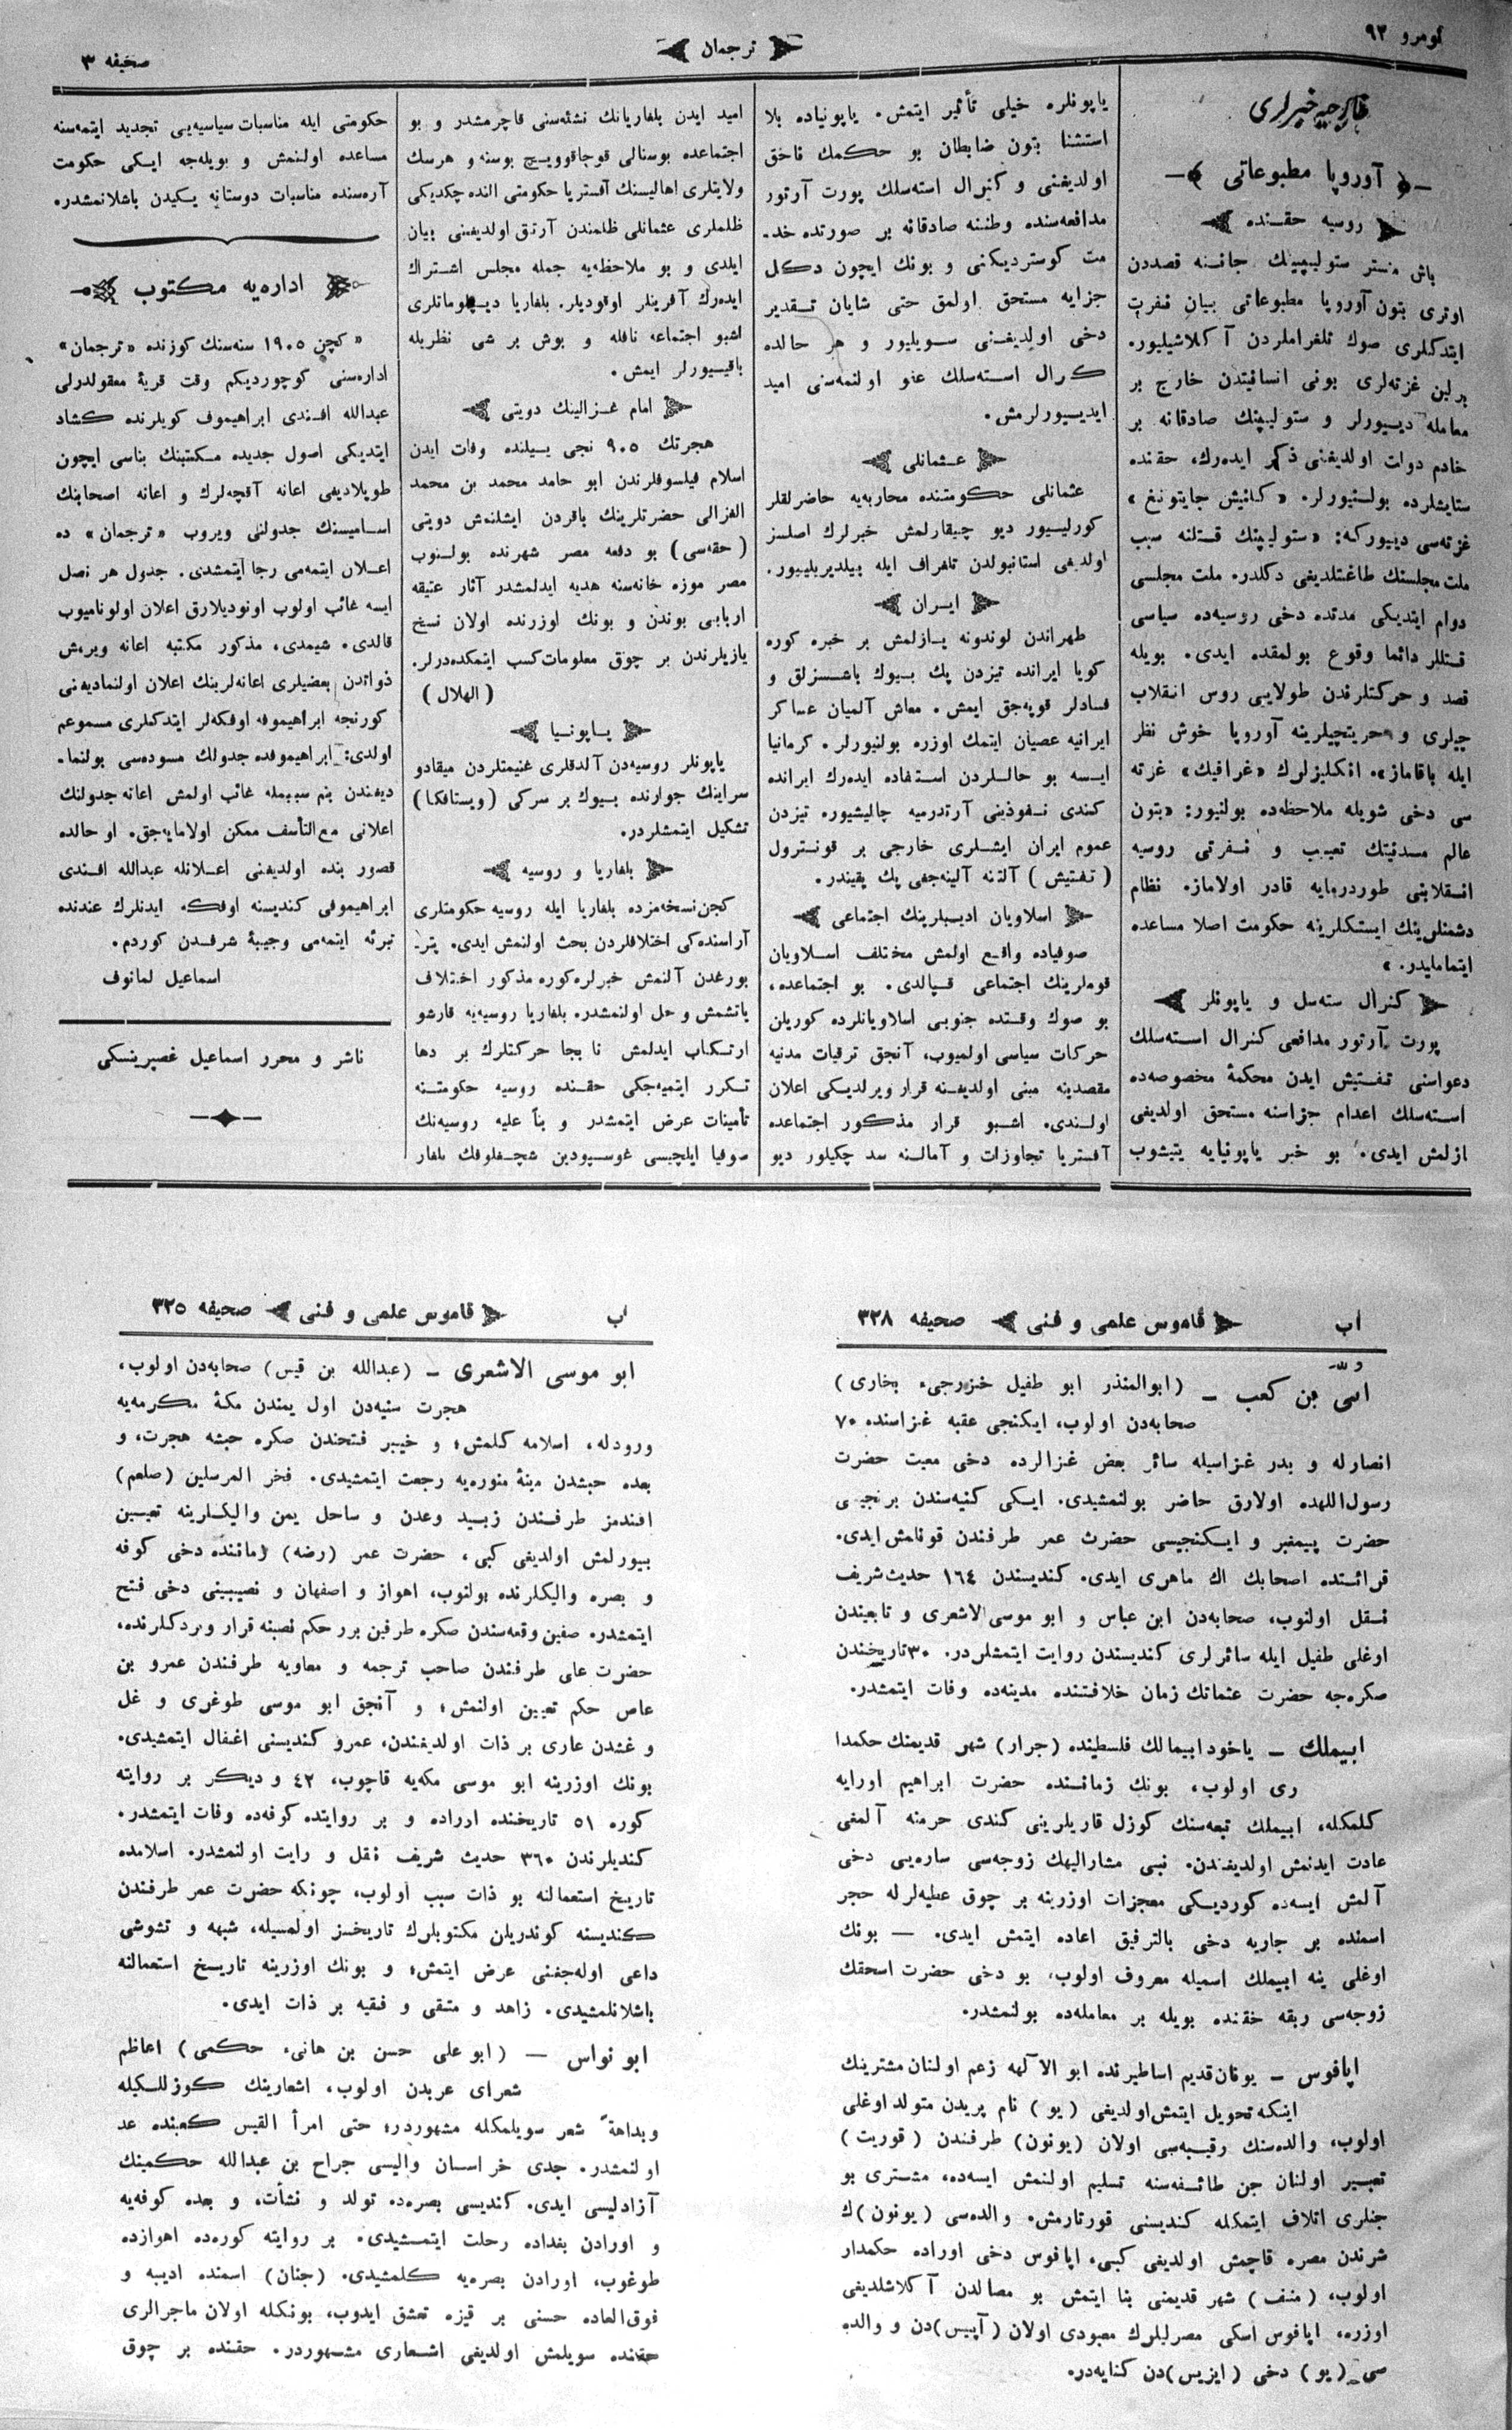 نومرو ٩٢
ترجمان
صحیفه ٣
خارجیه خبرلری
آوروپا مطبوعاتی
روسیه حقنده
باش منستر ستولیپینك جاننه قصددن
اوتری بتون آوروپا مطبوعاتی بیان نفرت
ایتدكلری صوك تلغراملردن آكلاشیلیور.
برلین غزته‌لری بونی انسانیتدن خارج بر
معامله دیییورلر و ستولیپینك صادقانه بر
خادم دولت اولدیغنی ذكر ایده‌رك، حقنده
ستایشلرده بولنیورلر. «كلنیش جایتونغ»
غزته‌سی دییوركه: «ستولیپنك قستلنه سبب
ملت مجلسنك طاغتلدیغی دكلدر. ملت مجلسی
دوام ایتدیكی مدتده دخی روسیه‌ده سیاسی
قتللر دائما وقوع بولمقده ایدی. بویله
قصد و حركتلرندن طولایی روس انقلاب
جیلری و حریتچیلرینه آوروپا خوش نظر
ایله باقاماز». انكلیزلرك «غرافیك» غزته
سی دخی شویله ملاحظه‌ده بولنیور: «بتون
عالم مدنیتك تعییب و نفرتی روسیه
انقلابنی طوردرمایه قادر اولاماز. نظام
دشمنلرینك ایستكلرینه حكومت اصلا مساعده
ایتمامایدر.»
كنرال سته‌سل و یاپونلر
پورت آرتور مدافعی كنرال استه‌سلك
دعواسنی تفتیش ایدن محكمۀ مخصوصه‌ده
استه‌سلك اعدام جزاسنه مستحق اولدیغی
ازلمش ایدی. بو خبر یاپونیایه یتیشوب
یاپونلره خیلی تأثیر ایتمش. یاپونیاده بلا
استثنا بتون ضابطان بو حكمك ناحق
اولدیغنی و كنرال استه‌سلك پورت آرتور
مدافعه‌سنده وطننه صادقانه بر صورتده خد.
مت كوستردیكنی و بونك ایچون دكل
جزایه مستحق اولمق حتی شایان تقدیر
دخی اولدیغنی سویلیور و هر حالده
كنرال استه‌سلك عفو اولنمه‌سنی امید
ایدییورلرمش.
عثمانلی
عثمانلی حكومتنده محاربه‌یه حاضرلقلر
كورلیسیور دیو چیقارلمش خبرلرك اصلسز
اولدیغی استانبولدن تلغراف ایله بیلدیریلییور.
ایران
طهراندن لوندونه یازلمش بر خبره كوره
كویا ایرانده تیزدن پك بیوك باشسزلق و
فسادلر قوپه‌جق ایمش. معاش آلمیان عساكر
ایرانیه عصیان ایتمك اوزره بولنیورلر. كرمانیا
ایسه بو حاللردن استفاده ایده‌رك ایرانده
كندی نفوذینی آرتدرمیه چالیشیور. تیزدن
عموم ایران ایشلری خارجی بر قونترول
(تفتیش) آلتنه آلینه‌جغی پك یقیندر.
اسلاویان ادیبلرینك اجتماعی
صوفیاده واقع اولمش مختلف اسلاویان
قوملرینك اجتماعی قپالدی. بو اجتماعده،
بو صوك وقتده جنوبی اسلاویانلرده كوریلن
حركات سیاسی اولمیوب، آنجق ترقیات مدنیه
مقصدینه مبنی اولدیغنه قرار ویرلدیكی اعلان
اولندی. اشبو قرار مذكور اجتماعده
آفستریا تجاوزات و آمالنه سد چكیلور دیو
امید ایدن بلغاریانك نشئه‌سنی قاچرمشدر و بو
اجتماعده بوسنالی قوجاقوویچ بوسنه و هرسك
ولایتلری اهالیسنك آفستریا حكومتی الندە چكدیكی
ظلملری عثمانلی ظلمندن آرتق اولدیغنی بیان
ایلدی و بو ملاحظه‌یه جمله مجلس اشتراك
ایده‌رك آفرینلر اوقودیلر. بلغاریا دیپلوماتلری
اشبو اجتماعه نافله و بوش بر شی نظریله
باقیسیورلر ایمش.
امام غزالینك دویتی
هجرتك ٩٠٥ نجی ییلنده وفات ایدن
اسلام فیلسوفلرندن ابو حامد محمد بن محمد
الغزالی حضرتلرینك باقردن ایشلنمش دویتی
(حقه‌سی) بو دفعه مصر شهرنده بولنوب
مصر موزه خانه‌سنه هدیه ایدلمشدر آثار عتیقه
اربابی بوندن و بونك اوزرنده اولان نسخ
یازیلرندن بر چوق معلومات كسب ایتمكده‌درلر.
(الهلال)
یاپونیا
یاپونلر روسیه‌دن آلدقلری غنیمتلردن میقادو
سراینك جوارنده بیوك بر سركی (ویستافكا)
تشكیل ایتمشلردر.
بلغاریا و روسیه
كچن نسخه‌مزده بلغاریا ایله روسیه حكومتلری
آراسنده‌كی اختلافلردن بحث اولنمش ایدی. پتر-
بورغدن آلنمش خبرلره كوره مذكور اختلاف
یاتشمش و حل اولنمشدر. بلغاریا روسیه‌یه قارشو
ارتكاب ایدلمش نا بجا حركتلرك بر دها
تكرر ایتمیه‌جكی حقنده روسیه حكومتنه
تأمینات عرض ایتمشدر و بنأ علیه روسیه‌نك
صوفیا ایلچیسی غوسپودین شچغلوفك بلغار
حكومتی ایله مناسبات سیاسیه‌یی تجدید ایتمه‌سنه
مساعده اولنمش و بویله‌جه ایكی حكومت
آره‌سنده مناسبات دوستانه یكیدن باشلانمشدر.
اداره‌یه مكتوب
«كچن ١٩٠٥ سنه‌سنك كوزنده «ترجمان»
اداره‌سنی كوچوردیكم وقت قریۀ معقولدرلی
عبدالله افندی ابراهیموف كویلرنده كشاد
ایتدیكی اصول جدیده مكتبنك بناسی ایچون
طوپلادیغی اعانه آقچه‌لرك و اعانه اصحابنك
اسامیسنك جدولنی ویروب «ترجمان» ده
اعلان ایتمه‌می رجا ایتمشدی. جدول هر نصل
ایسه غائب اولوب اونودیلارق اعلان اولونامیوب
قالدی. شیمدی، مذكور مكتبه اعانه ویرمش
ذواتدن بعضیلری اعانه‌لرینك اعلان اولنمادیغنی
كورنجه ابراهیموفه اوفكه‌لر ایتدكلری مسموعم
اولدی: ابراهیموفده جدولك مسوده‌سی بولنما-
دیغندن بنم سببمله غائب اولمش اعانه جدولنك
اعلانی مع التأسف ممكن اولامایه‌جق. او حالده
قصور بنده اولدیغنی اعلانله عبدالله افندی
ابراهیموفی كندیسنه اوفكه ایدنلرك عندنده
تبرئه ایتمه‌می وجیبۀ شرفدن كوردم.
اسماعیل لمانوف
ناشر و محرر اسماعیل غصپرینسكی
اب
قاموس علمی و فنی
صحیفه ٣٢٨
ابیّ بن كعب – (ابوالمنذر ابو طفیل خزرجیء بخاری)
صحابه‌دن اولوب، ایكنجی عقبه غزاسنده ٧٠
انصارله و بدر غزاسیله سائر بعض غزالرده دخی معیت حضرت
رسول‌اللهده اولارق حاضر بولنمشیدی. ایكی كنیه‌سندن برنجیسی
حضرت پیمغبر و ایكنجیسی حضرت عمر طرفندن قونامش ایدی.
قرائتده اصحابك اك ماهری ایدی. كندیسندن ١٦٤ حدیث شریف
نقل اولنوب، صحابه‌دن ابن عباس و ابو موسی الاشعری و تابعیندن
اوغلی طفیل ایله سائرلری كندیسندن روایت ایتمشلردر. ٣٠ تاریخندن
صكره‌جه حضرت عثمانك زمان خلافتنده مدینه‌ده وفات ایتمشدر.
ابیملك – یاخود ابیمالك فلسطینده (جرار) شهر قدیمنك حكمدا
ری اولوب، بونك زمانسنده حضرت ابراهیم اورایه
كلمكله، ابیملك تبعه‌سنك كوزل قاریلرینی كندی حرمنه آلمغی
عادت ایدنمش اولدیغندن. نبی مشارالیهك زوجه‌سی ساره‌یی دخی
آلمش ایسه‌ده كوردیكی معجزات اوزرینه بر چوق عطیه‌لرله حجر
اسمنده بر جاریه دخی بالترفیق اعاده ایتمش ایدی. — بونك
اوغلی ینه ابیملك اسمیله معروف اولوب، بو دخی حضرت اسحقك
زوجه‌سی ربقه حقنده بویله بر معامله‌ده بولنمشدر.
اپافوس – یونان قدیم اساطیرنده ابو الآلهه زعم اولنان مشترینك
اینكه تحویل ایتمش اولدیغی (یو) نام پریدن متولد اوغلی
اولوب، والده‌سنك رقیبه‌سی اولان (یونون) طرفندن (قوریت)
تعبیر اولنان جن طائفه‌سنه تسلیم اولنمش ایسه‌ده، مشتری بو
جنلری اتلاف ایتمكله كندیسنی قورتارمش. والده‌سی (یونون)ك
شرندن مصره قاچمش اولدیغی كبی، اپافوس دخی اوراده حكمدار
اولوب، (منف) شهر قدیمنی بنا ایتمش بو مصالدن آكلاشلدیغی
اوزره، اپافوس اسكی مصرلیلرك معبودی اولان (آپیس)دن و والده
سی (یو) دخی (ایزیس)دن كنایه‌در.
اب
قاموس علمی و فنی
صحیفه ٣٢٥
ابو موسی الاشعری – (عبدالله بن قیس) صحابه‌دن اولوب،
هجرت سنیه‌دن اول یمندن مكۀ مكرمه‌یه
ورودله، اسلامه كلمش؛ و خیبر فتحندن صكره حبشه هجرت، و
بعده حبشدن مینۀ منوره‌یه رجعت ایتمشیدی. فخر المرسلین (صلعم)
افندمز طرفندن زبید وعدن و ساحل یمن والیكلرینه تعیین
بیورلمش اولدیغی كبی، حضرت عمر (رضه) زماننده دخی كوفه
و بصره والیكلرنده بولنوب، اهواز و اصفهان و نصیبینی دخی فتح
ایتمشدر. صفین وقعه‌سندن صكره طرفین برر حكم نصبنه قرار ویردكلرنده،
حضرت علی طرفندن صاحب ترجمه و معاویه طرفندن عمرو بن
عاص حكم تعیین اولنمش؛ و آنجق ابو موسی طوغری و غل
و غشدن عاری بر ذات اولدیغندن، عمرو كندیسنی اغفال ایتمشیدی.
بونك اوزرینه ابو موسی مكه‌یه قاچوب، ٤٢ و دیكر بر روایته
كوره ٥١ تاریخنده اوراده و بر روایتده كوفه‌ده وفات ایتمشدر.
كندیلرندن ٣٦٠ حدیث شریف نقل و رایت اولنمشدر. اسلامده
تاریخ استعمالنه بو ذات سبب اولوب، چونكه حضرت عمر طرفندن
كندیسنه كوندریلن مكتوبلرك تاریخسز اولمسیله، شبهه و تشوشی
داعی اوله‌جغنی عرض ایتمش؛ و بونك اوزرینه تاریخ استعمالنه
باشلانلمشیدی. زاهد و متقی و فقیه بر ذات ایدی.
ابو نواس — (ابو علی حسن بن هانیء حكمی) اعاظم
شعرای عربدن اولوب، اشعارینك كوزللكیله
وبداهةً شعر سویلمكله مشهوردر؛ حتی امرأ القیس كعبنده عد
اولنمشدر. جدی خراسان والیسی جراح بن عبدالله حكمینك
آزادلیسی ایدی. كندیسی بصره‌ده تولد و نشأت، و بعده كوفه‌یه
و اورادن بغداده رحلت ایتمشیدی. بر روایته كوره‌ده اهوازده
طوغوب، اورادن بصره‌یه كلمشیدی. (جنان) اسمنده ادیبه و
فوق‌العاده حسنی بر قیزه تعشق ایدوب، بونكله اولان ماجرالری
حقنده سویلمش اولدیغی اشعاری مشهوردر. حقنده بر چوق